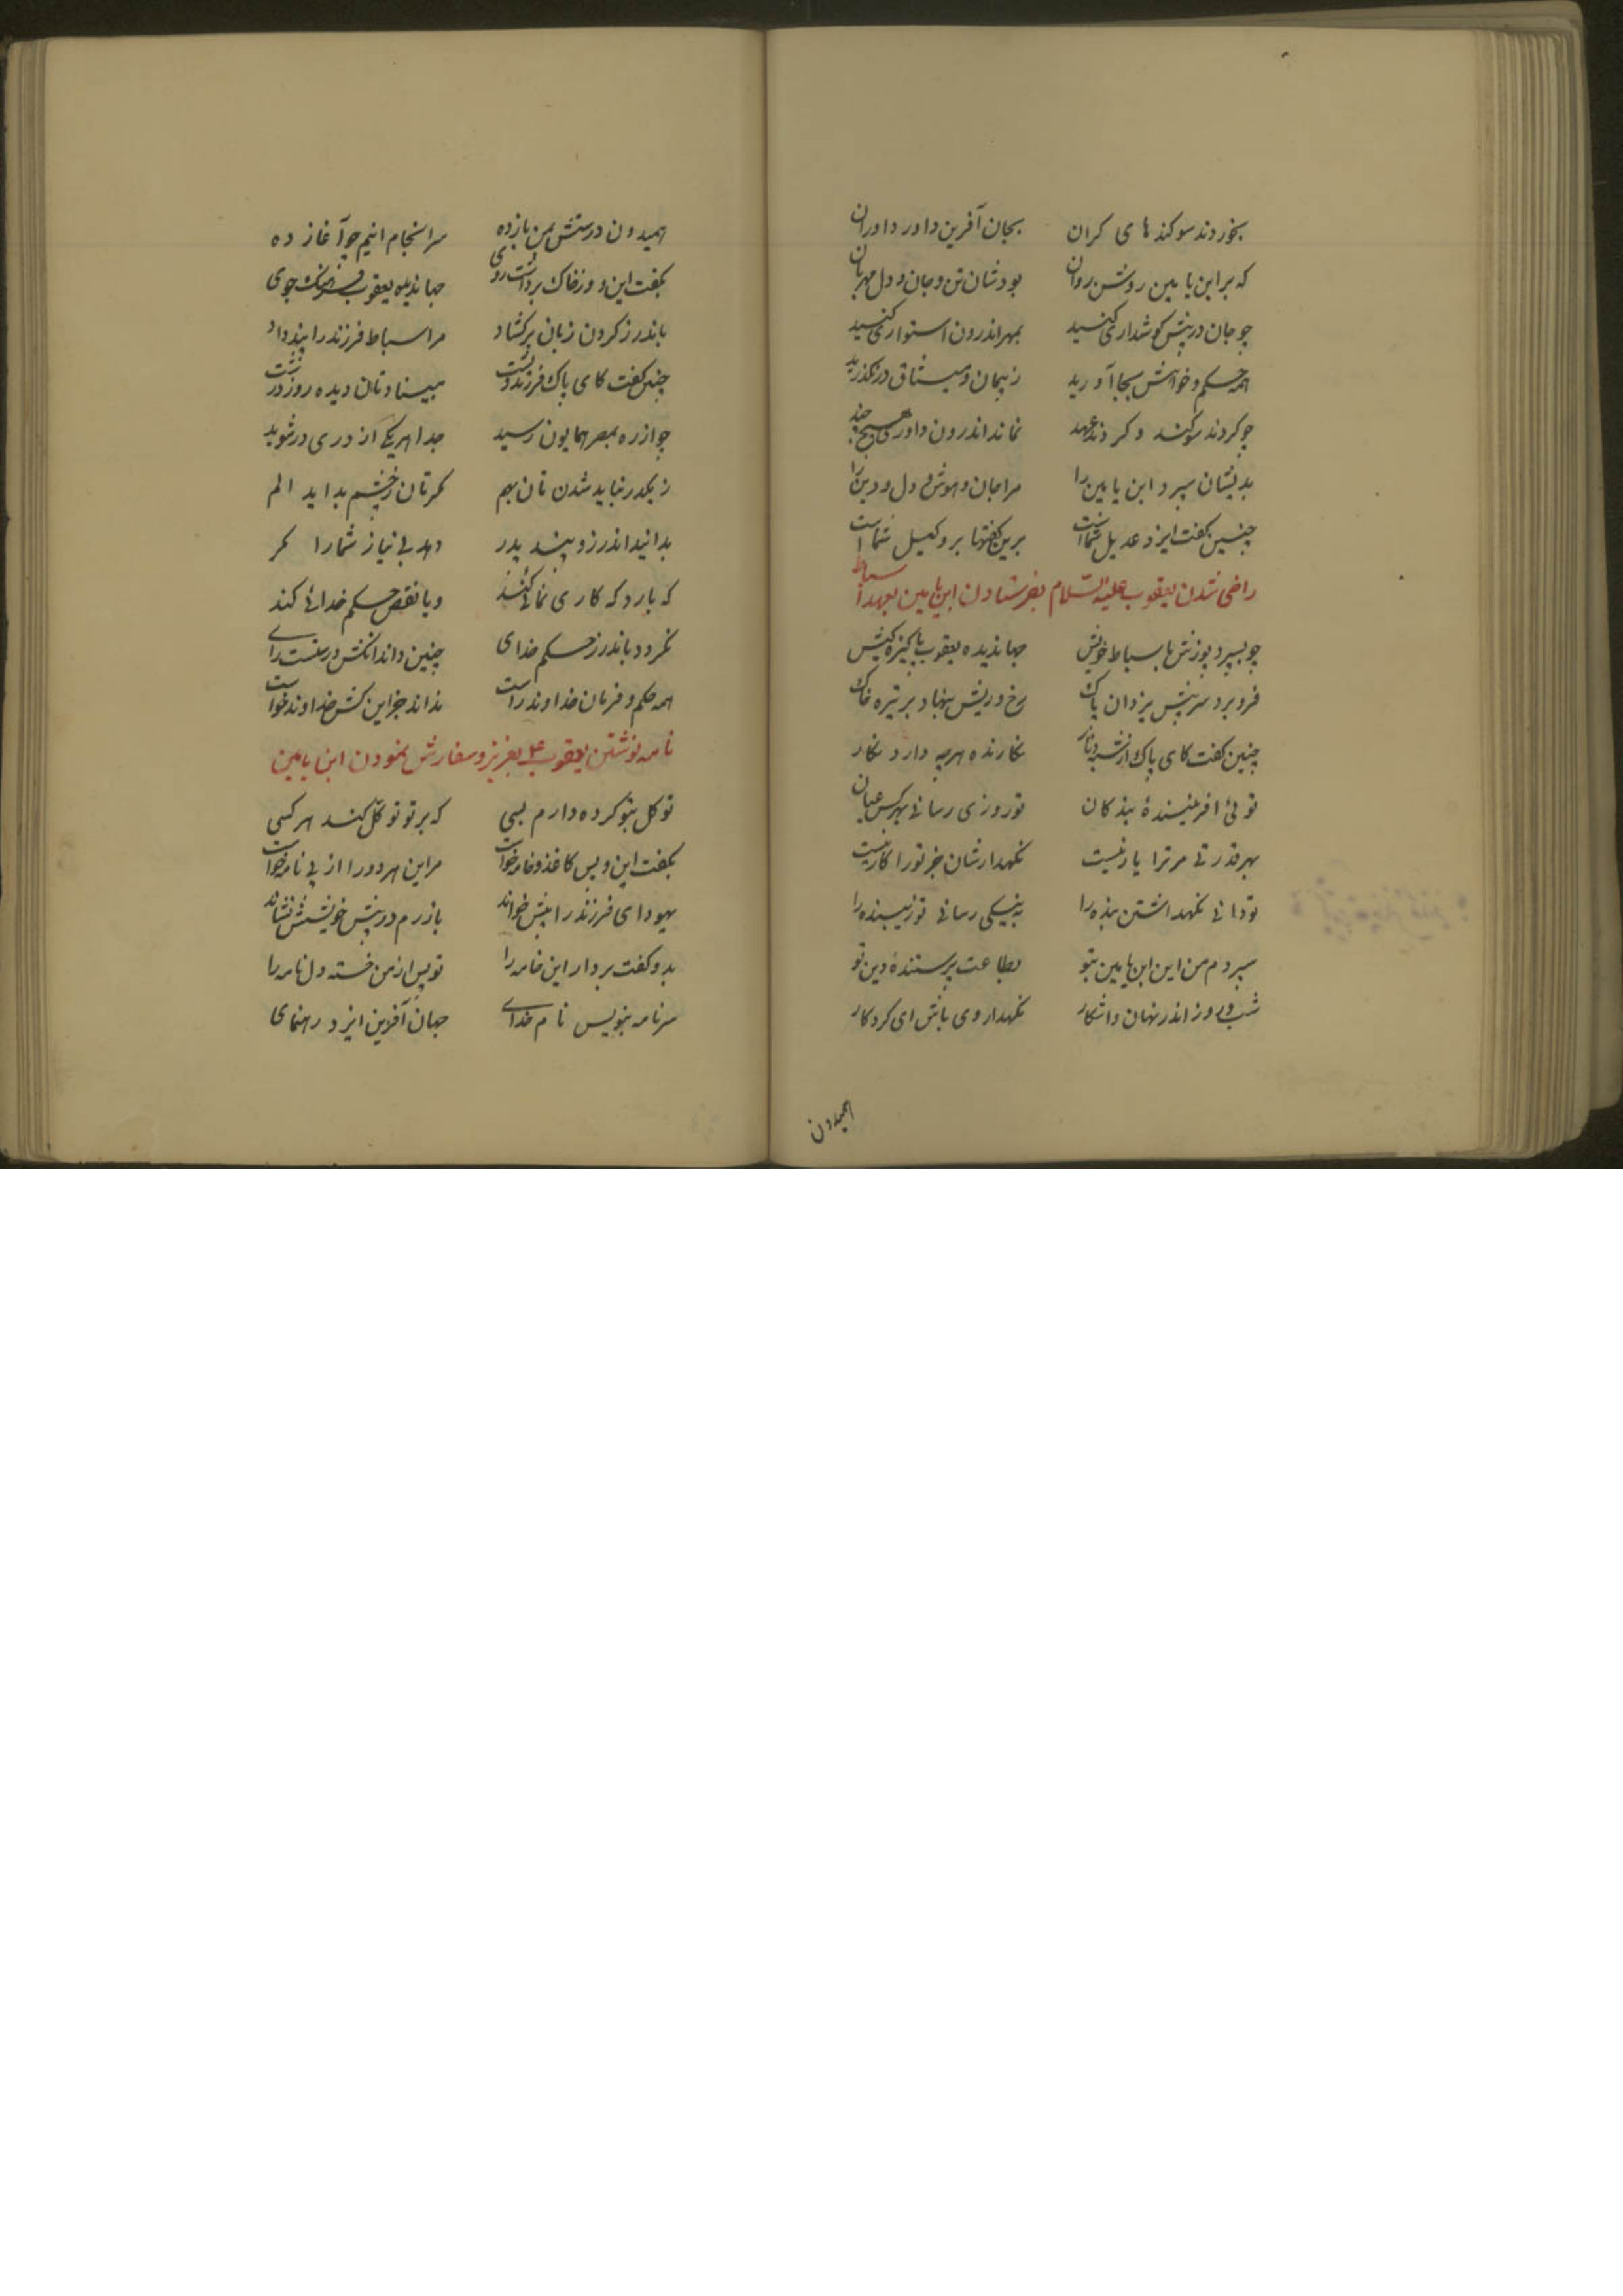 بخوردند سوکندهای کران بجان آفرین داور داوران
که بر ابن یامین روشن روان بودشان تن و جان و دل مهربان
چو جان در پیش کوشداری کنید بمهر اندرون استواری کنید
همه حکم و خواهش بجا آورید ز پیمان و میثاق در نکذرید
چو کردند سوکند و کردند عهد نماند اندرون داوری هیچ
بدیشان سپرد ابن یامین را مرا جان و هوش و دل و دین را
چنین کفت ایزد عدیل شماست برین کفتها بر وکیل شماست
راضی شدن یعقوب علیه السلام بفرستادن ابن یامین بعهد اسباط
چو بسپرد پوزش باسباط خویش جهاندیده یعقوب پاکیزه کیش
فرو برد سر پیش یزدان پاک رخ و ریش بنهاد بر تیره خاک
چنین کفت کای پاک نکارنده هرچه دارد نکار
توئی افرینندهٔ بندکان تو روزی رسانی بهر کس عیان
بهر قدرتی مر ترا یار نیست نکهدارشان جز تو را کار نیست
تو دانی نکهداشتن بنده را به نیکی رسانی تو زیبنده را
سپردم من این ابن یامین بتو بطاعت پرستندهٔ دین تو
شب و روز اندر نهان و اشکار نکهدار وی باش ای کردکار
همیدون
همیدون درستش بمن باز ده سرانجام انیم چو آغاز ده
بکفت این و وز خاک برداشت روی جهاندیده یعقوب فرهنک جوی
باندرز کردن زبان برکشاد مر اسباط فرزند را پند داد
چنین کفت کای پاک فرزند مبیناد تان دیده روز درشت
چو از ره بمصر همایون رسید جدا هر یکی از دری در شوید
ز یکدر نباید شدن تان بهم کزتان ز چشم بد اید الم
بدانید اندرز و پند پدر دهد بی نیاز شما را کر
که یارد که کاری نمائی کند و یا نقص حکم خدائی کند
نکردد باندرز حکم خدای چنین داند انکش درستست رای
همه حکم و فرمان خداوند راست نداند جز این کش خداوند خواست
نامه نوشتن یعقوب ع بعزیز و سفارش نمودن ابن یامین
توکل بتو کرده دارم بسی که بر تو توکل کند هر کسی
بکفت این و پس کاغذ و خامه خواست مر این هر دو را از پی نامه خواست
یهودای فرزند را پیش خواند بازرم در پیش خویشش نشاند
بدو کفت بردار این خامه را نویس از من خسته دل نامه را
سر نامه بنویس نام خدای جهان آفرین ایزد رهنمای